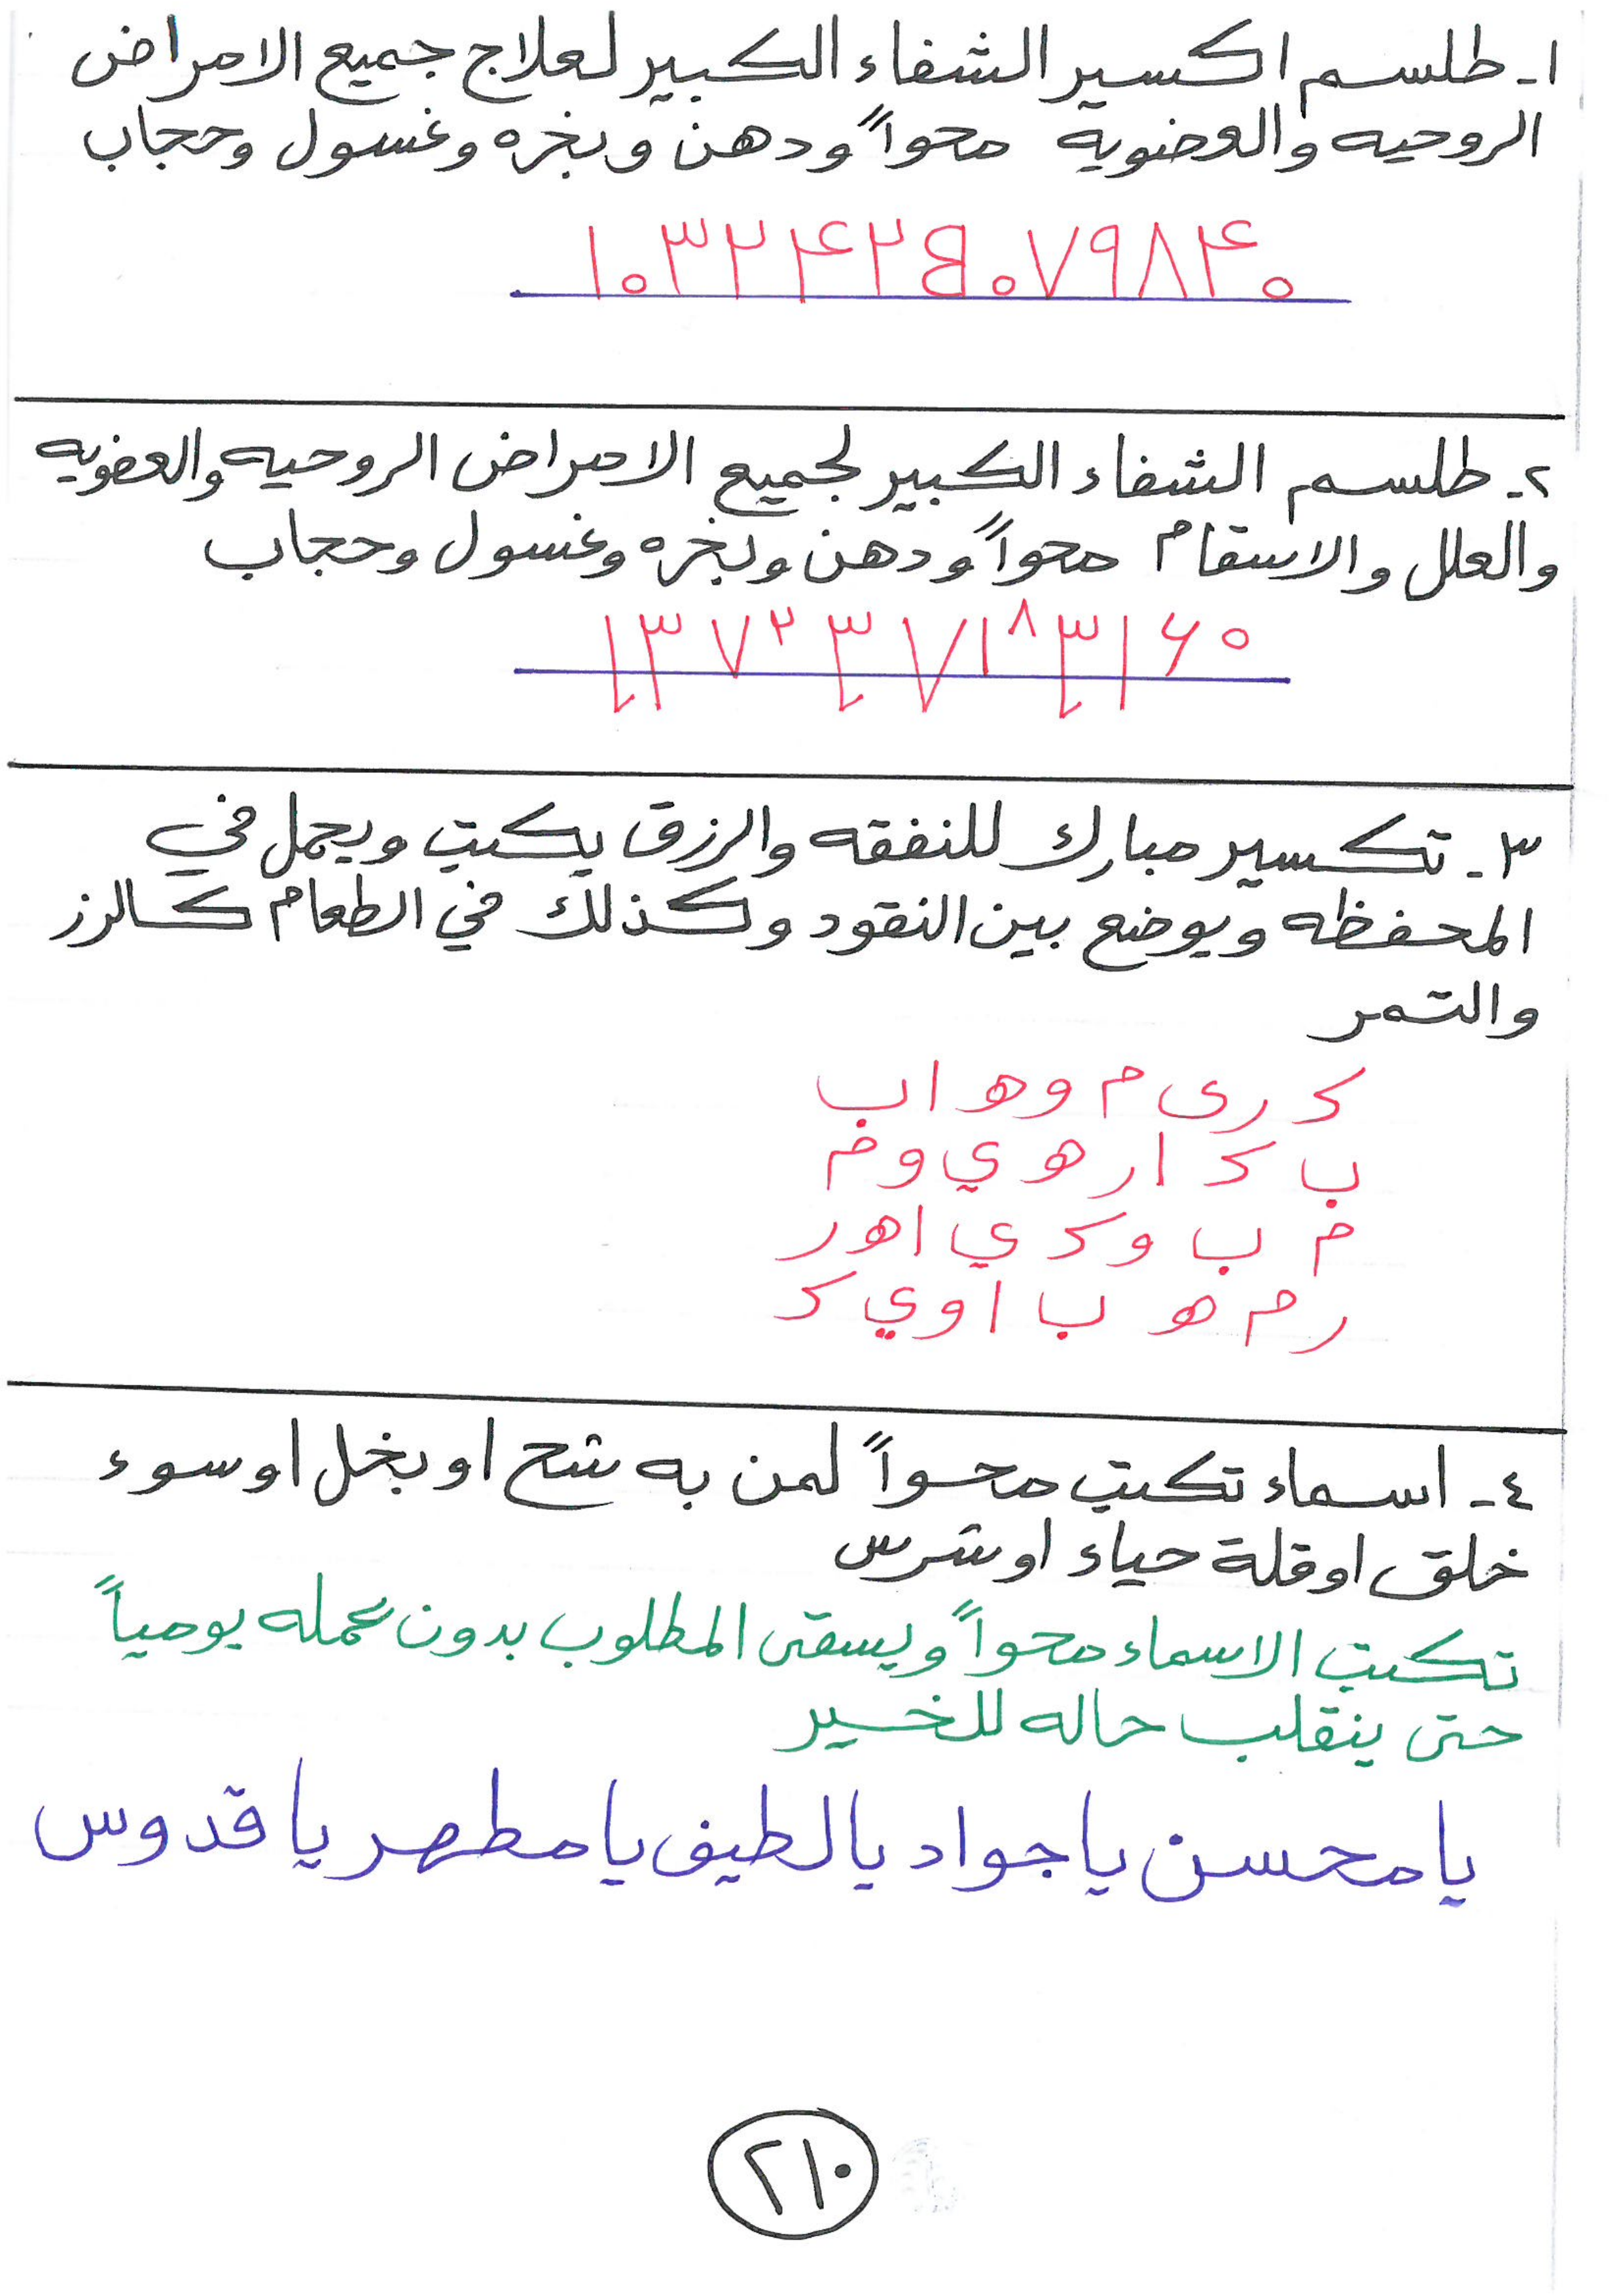 ١- طلسم اكسير الشفاء الكبير لعلاج جميع الامراض
الروحيه والعضوية محواً ودهن وبخره وغسول وحجاب
٢- طلسم الشفاء الكبير لجميع الامراض الروحيه والعضويه
والعلل والاسقام محواً ودهن وبخره وغسول وحجاب
١٣٧٢٣٧١٨٣١٦٥
٣- تكسير مبارك للنفقه والرزق يكتب ويحمل في
المحفظه ويوضع بين النقود وكذلك في الطعام كالرز
والتمر
ك ر ى م و ه ا ب
ب ك ا ر ه ي و م
م ب و ك ي ا ه ر
ر م ه ب ا و ي ك
٤- اسماء تكتب محواً لمن به شح او بخل او سوء
خلق او قلة حياء او شرس
تكتب الاسماء محواً ويسقى المطلوب بدون علمه يومياً
حتى ينقلب حاله للخير
يا محسن يا جواد يا لطيف يا مطهر يا قدوس
٢١٠